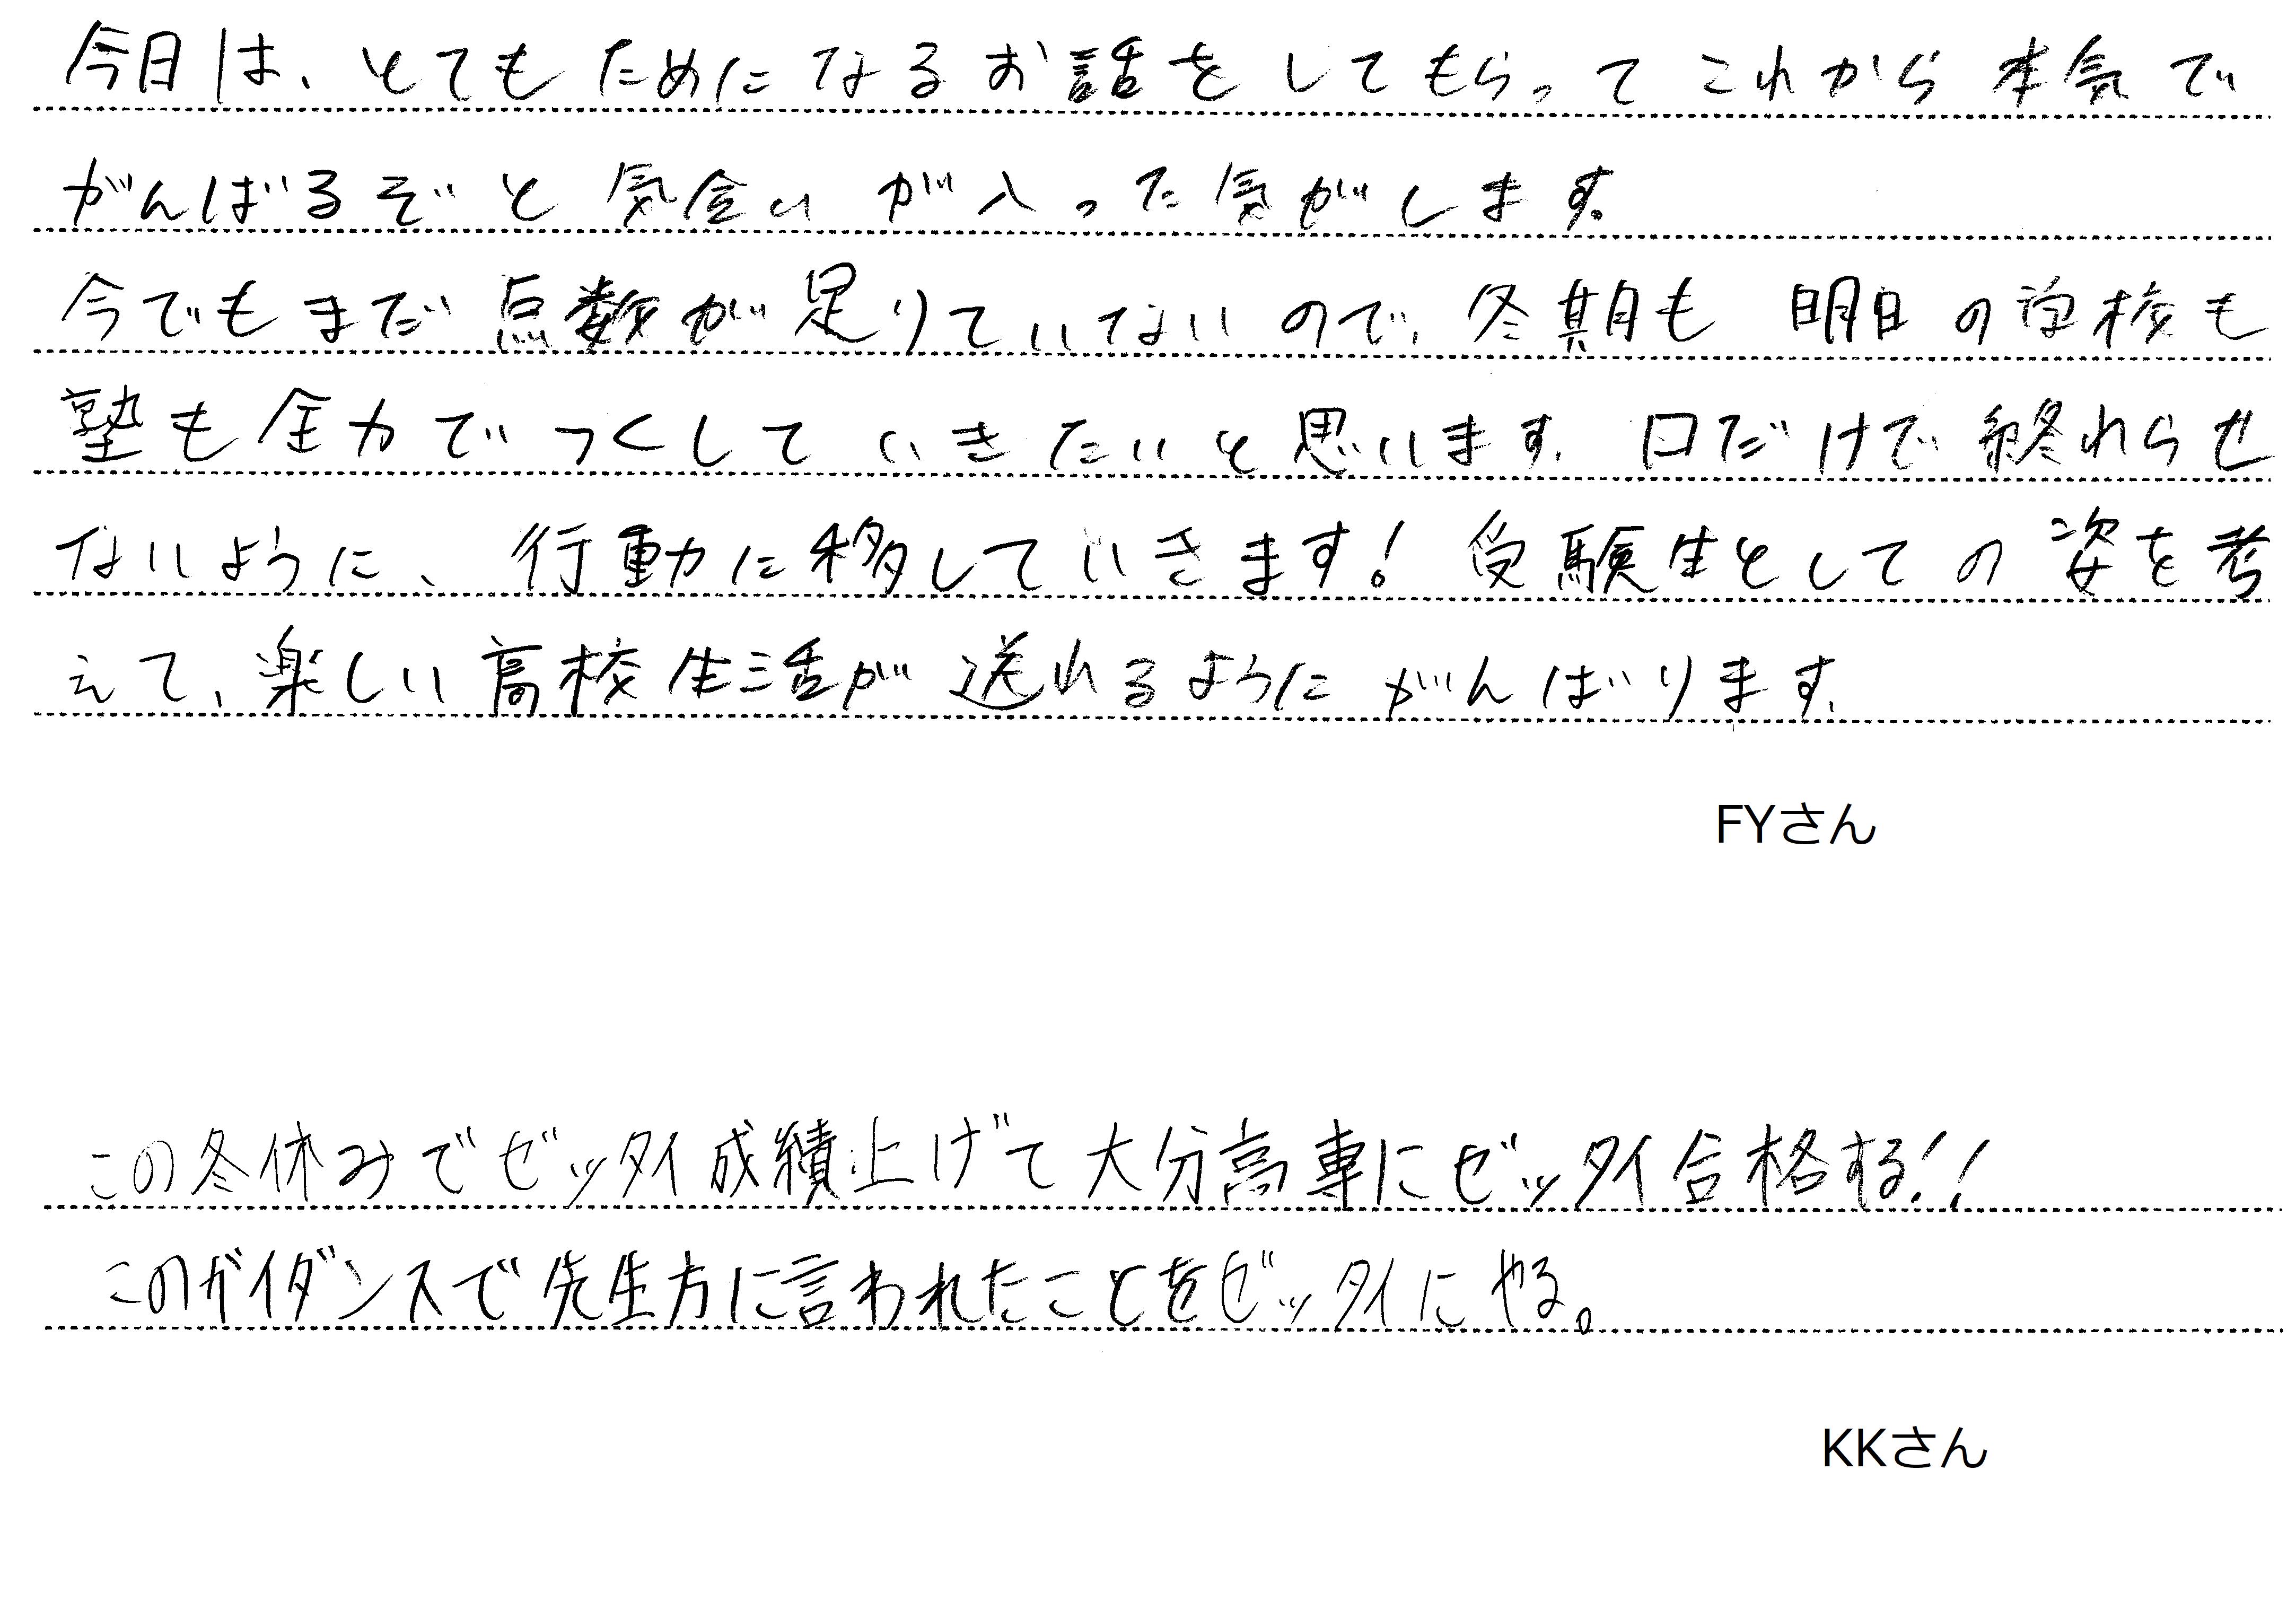 今日は、とてもためになるお話をしてもらってこれから本気で
がんばるぞと気合いが入った気がします。
今でもまだ点数が足りていないので、冬期も明日の学校も
塾も全力でつくしていきたいと思います。口だけで終れらせ
ないように、行動に移していきます！受験生としての姿を考
えて、楽しい高校生活が送れるようにがんばります。
FYさん
この冬休みでゼッタイ成績上げて大分高専にゼッタイ合格する！！
このガイダンスで先生方に言われたことをゼッタイにやる。
KKさん